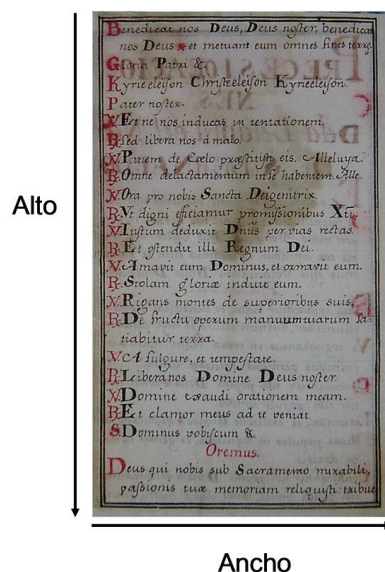 Alto
Benedicat nos Deus, Deus noster, benedicat
nos Deus * et metuant eum omnes fines terræ.
Gloria Patri &.
Kyrie eleison Christe eleison Kyrie eleison.
Pater noster.
V. Et ne nos inducas in tentationem.
R. Sed libera nos à malo.
V. Panem de Cœlo præstitisti eis. Alleluya.
R. Omne delactamentum in se habentem. Alle.
V. Ora pro nobis Sancta Dei genitrix.
R. Vt digni eficiamur promissionibus Xti.
V. Iustum deduxit Dnus per vias rectas.
R. Et ostendit illi Regnum Dei.
V. Amavit eum Dominus, et ornavit eum.
R. Stolam gloriæ induit eum.
V. Rigans montes de superioribus suis
R. De fructu operum manuum tuarum sa-
tiabitur terra.
V. A fulgure, et tempestate.
R. Libera nos Domine Deus noster.
V. Domine exaudi orationem meam.
R. Et clamor meus ad te veniat
S. Dominus vobiscum &.
Oremus.
Deus qui nobis sub Sacramento mirabili,
passionis tuæ memoriam reliquisti tribue
Ancho